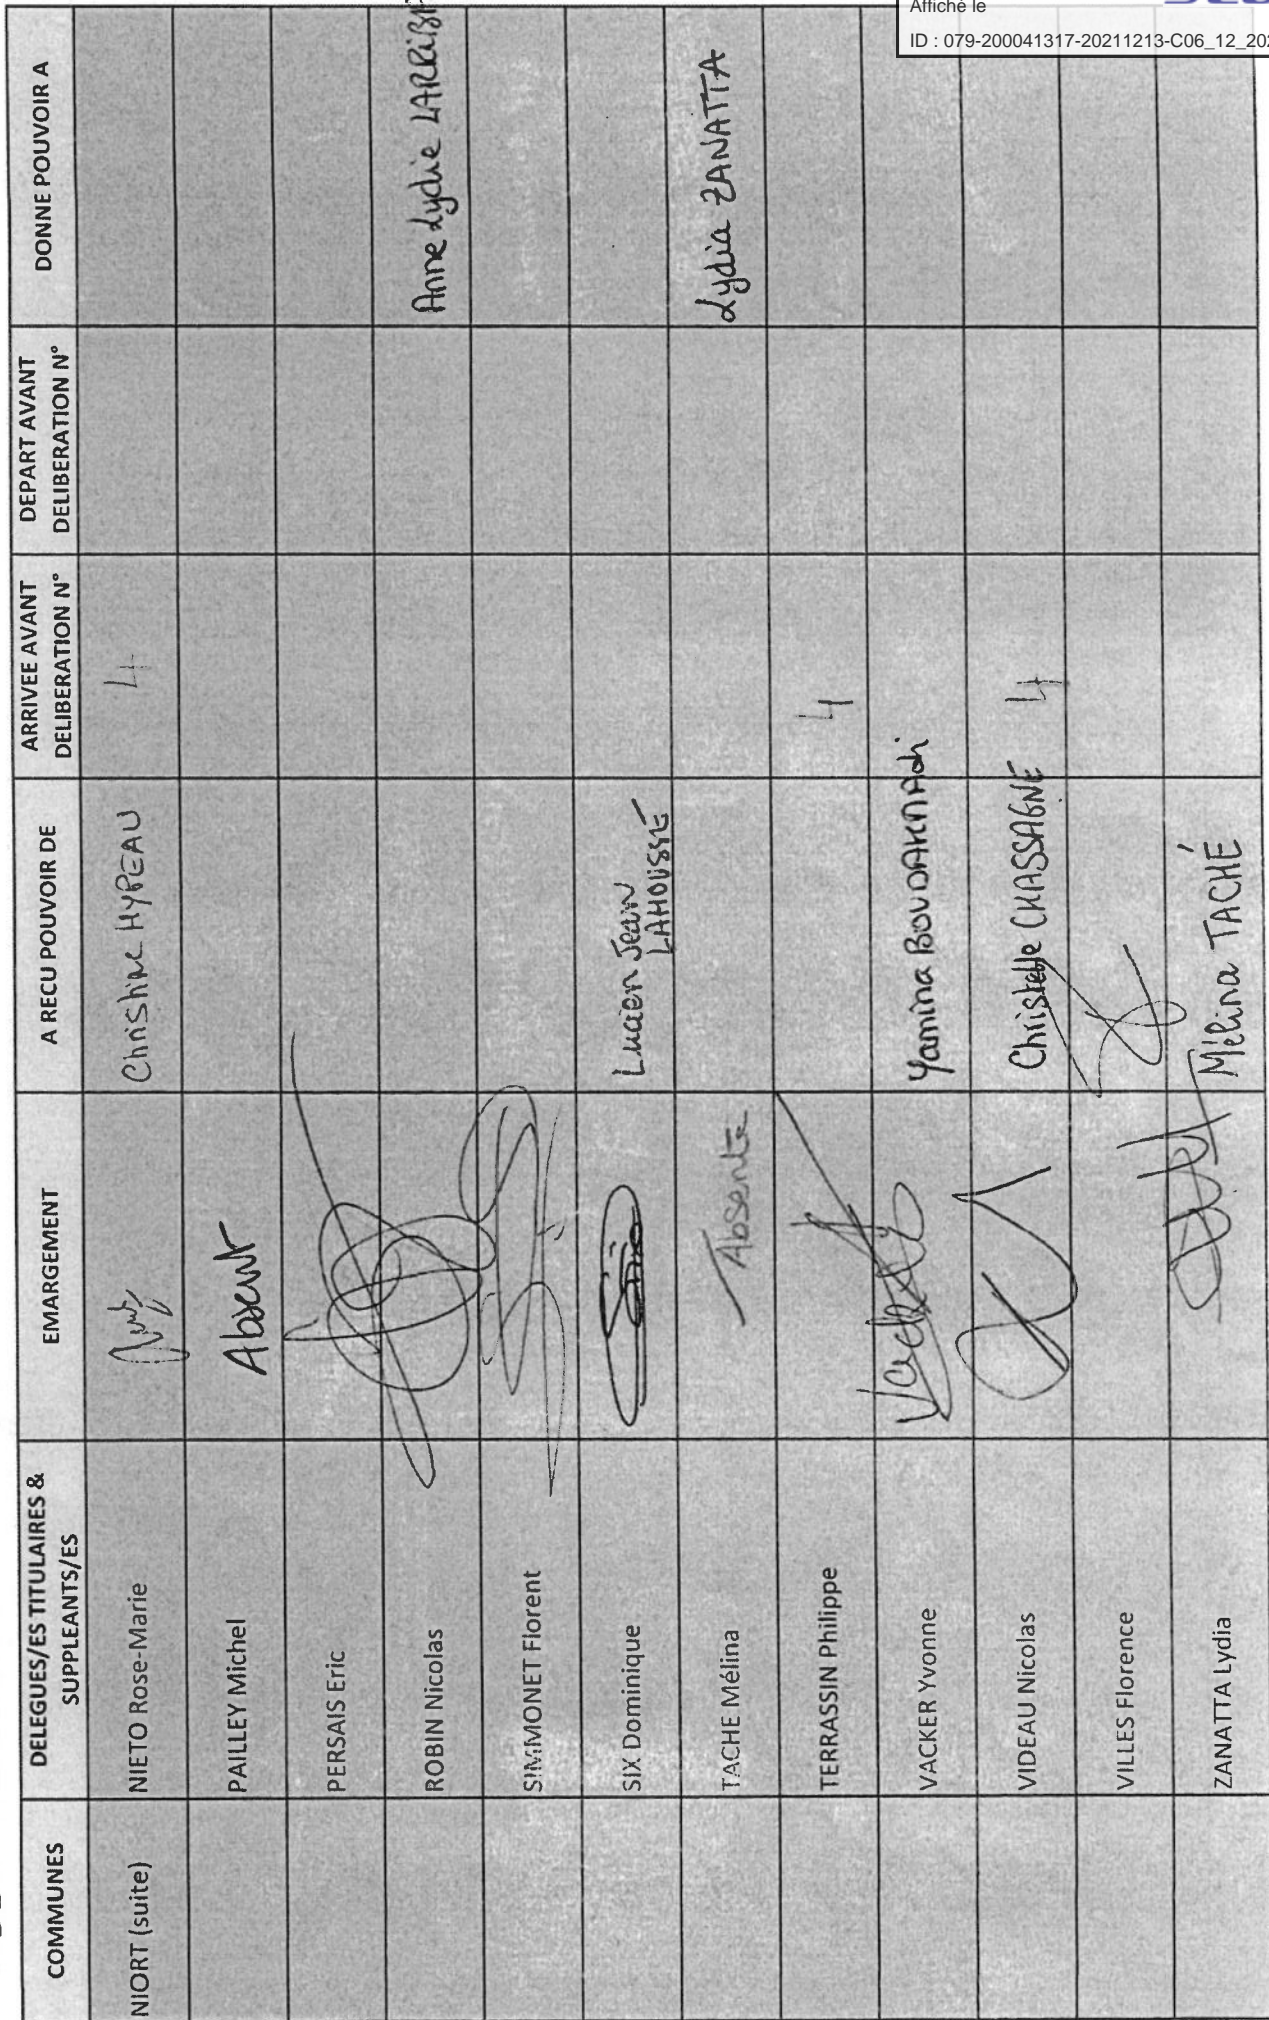 Affiché le
ID : 079-200041317-20211213-C06_12_202
COMMUNES
DELEGUES/ES TITULAIRES &
SUPPLEANTS/ES
EMARGEMENT
A RECU POUVOIR DE
ARRIVEE AVANT
DELIBERATION N°
DEPART AVANT
DELIBERATION N°
DONNE POUVOIR A
NIORT (suite)
NIETO Rose-Marie
Christine HYPEAU
4
PAILLEY Michel
Absent
PERSAIS Eric
ROBIN Nicolas
Anne Lydie LARRIB
SIMMONET Florent
SIX Dominique
Lucien Jean
LAHOUSSE
TACHE Mélina
Absente
Lydia ZANATTA
TERRASSIN Philippe
4
VACKER Yvonne
Yamina
VIDEAU Nicolas
Christelle CHASSAGNE
4
VILLES Florence
ZANATTA Lydia
Mélina TACHÉ